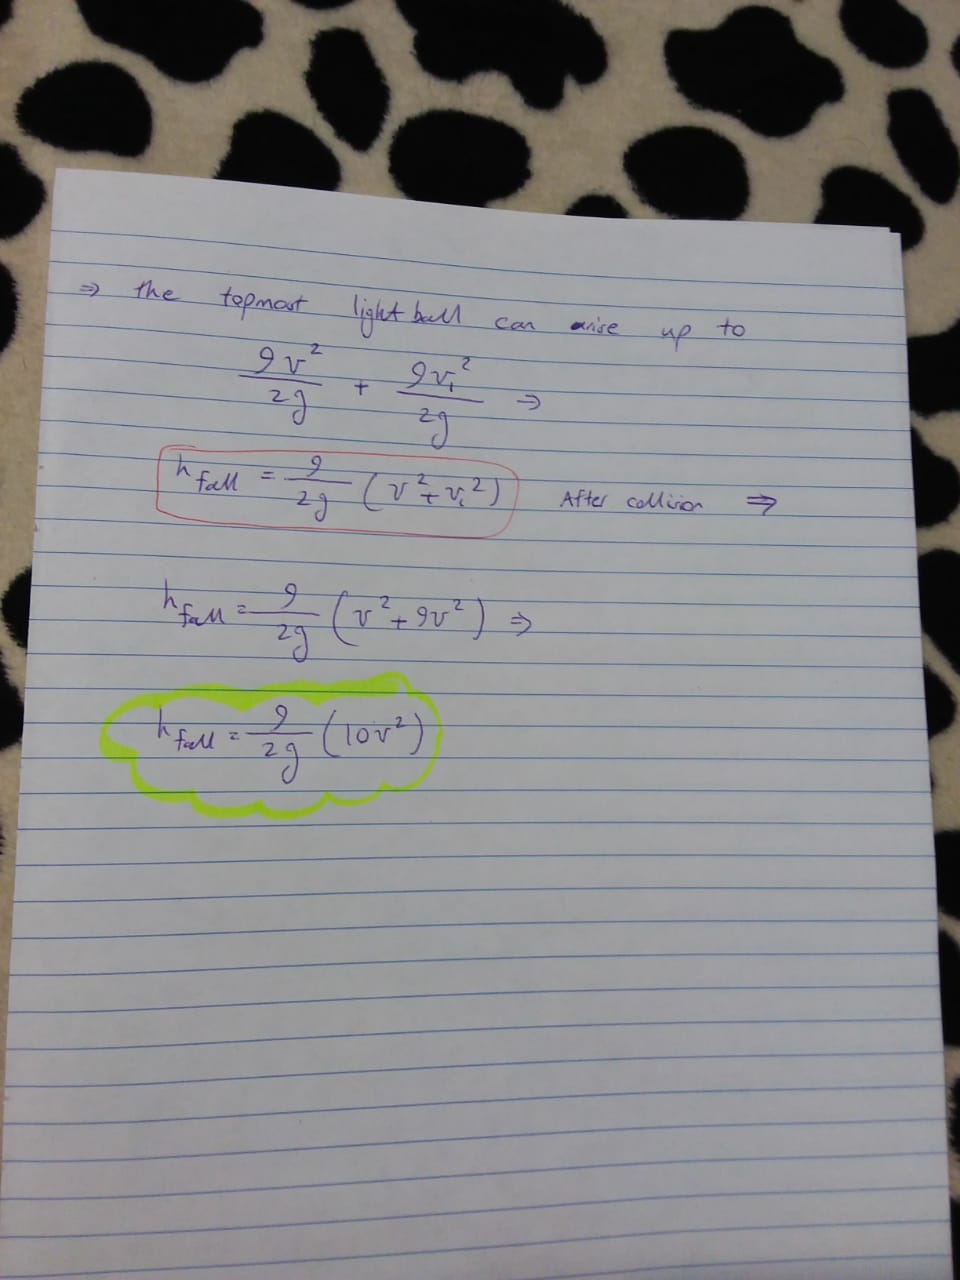 ⇒ the topmost light ball can arise up to
9v²/2g + 9v₁²/2g ⇒
h fall = 9/2g (v² + v₁²) After collision ⇒
h fall = 9/2g (v² + 9v²) ⇒
h fall = 9/2g (10v²)